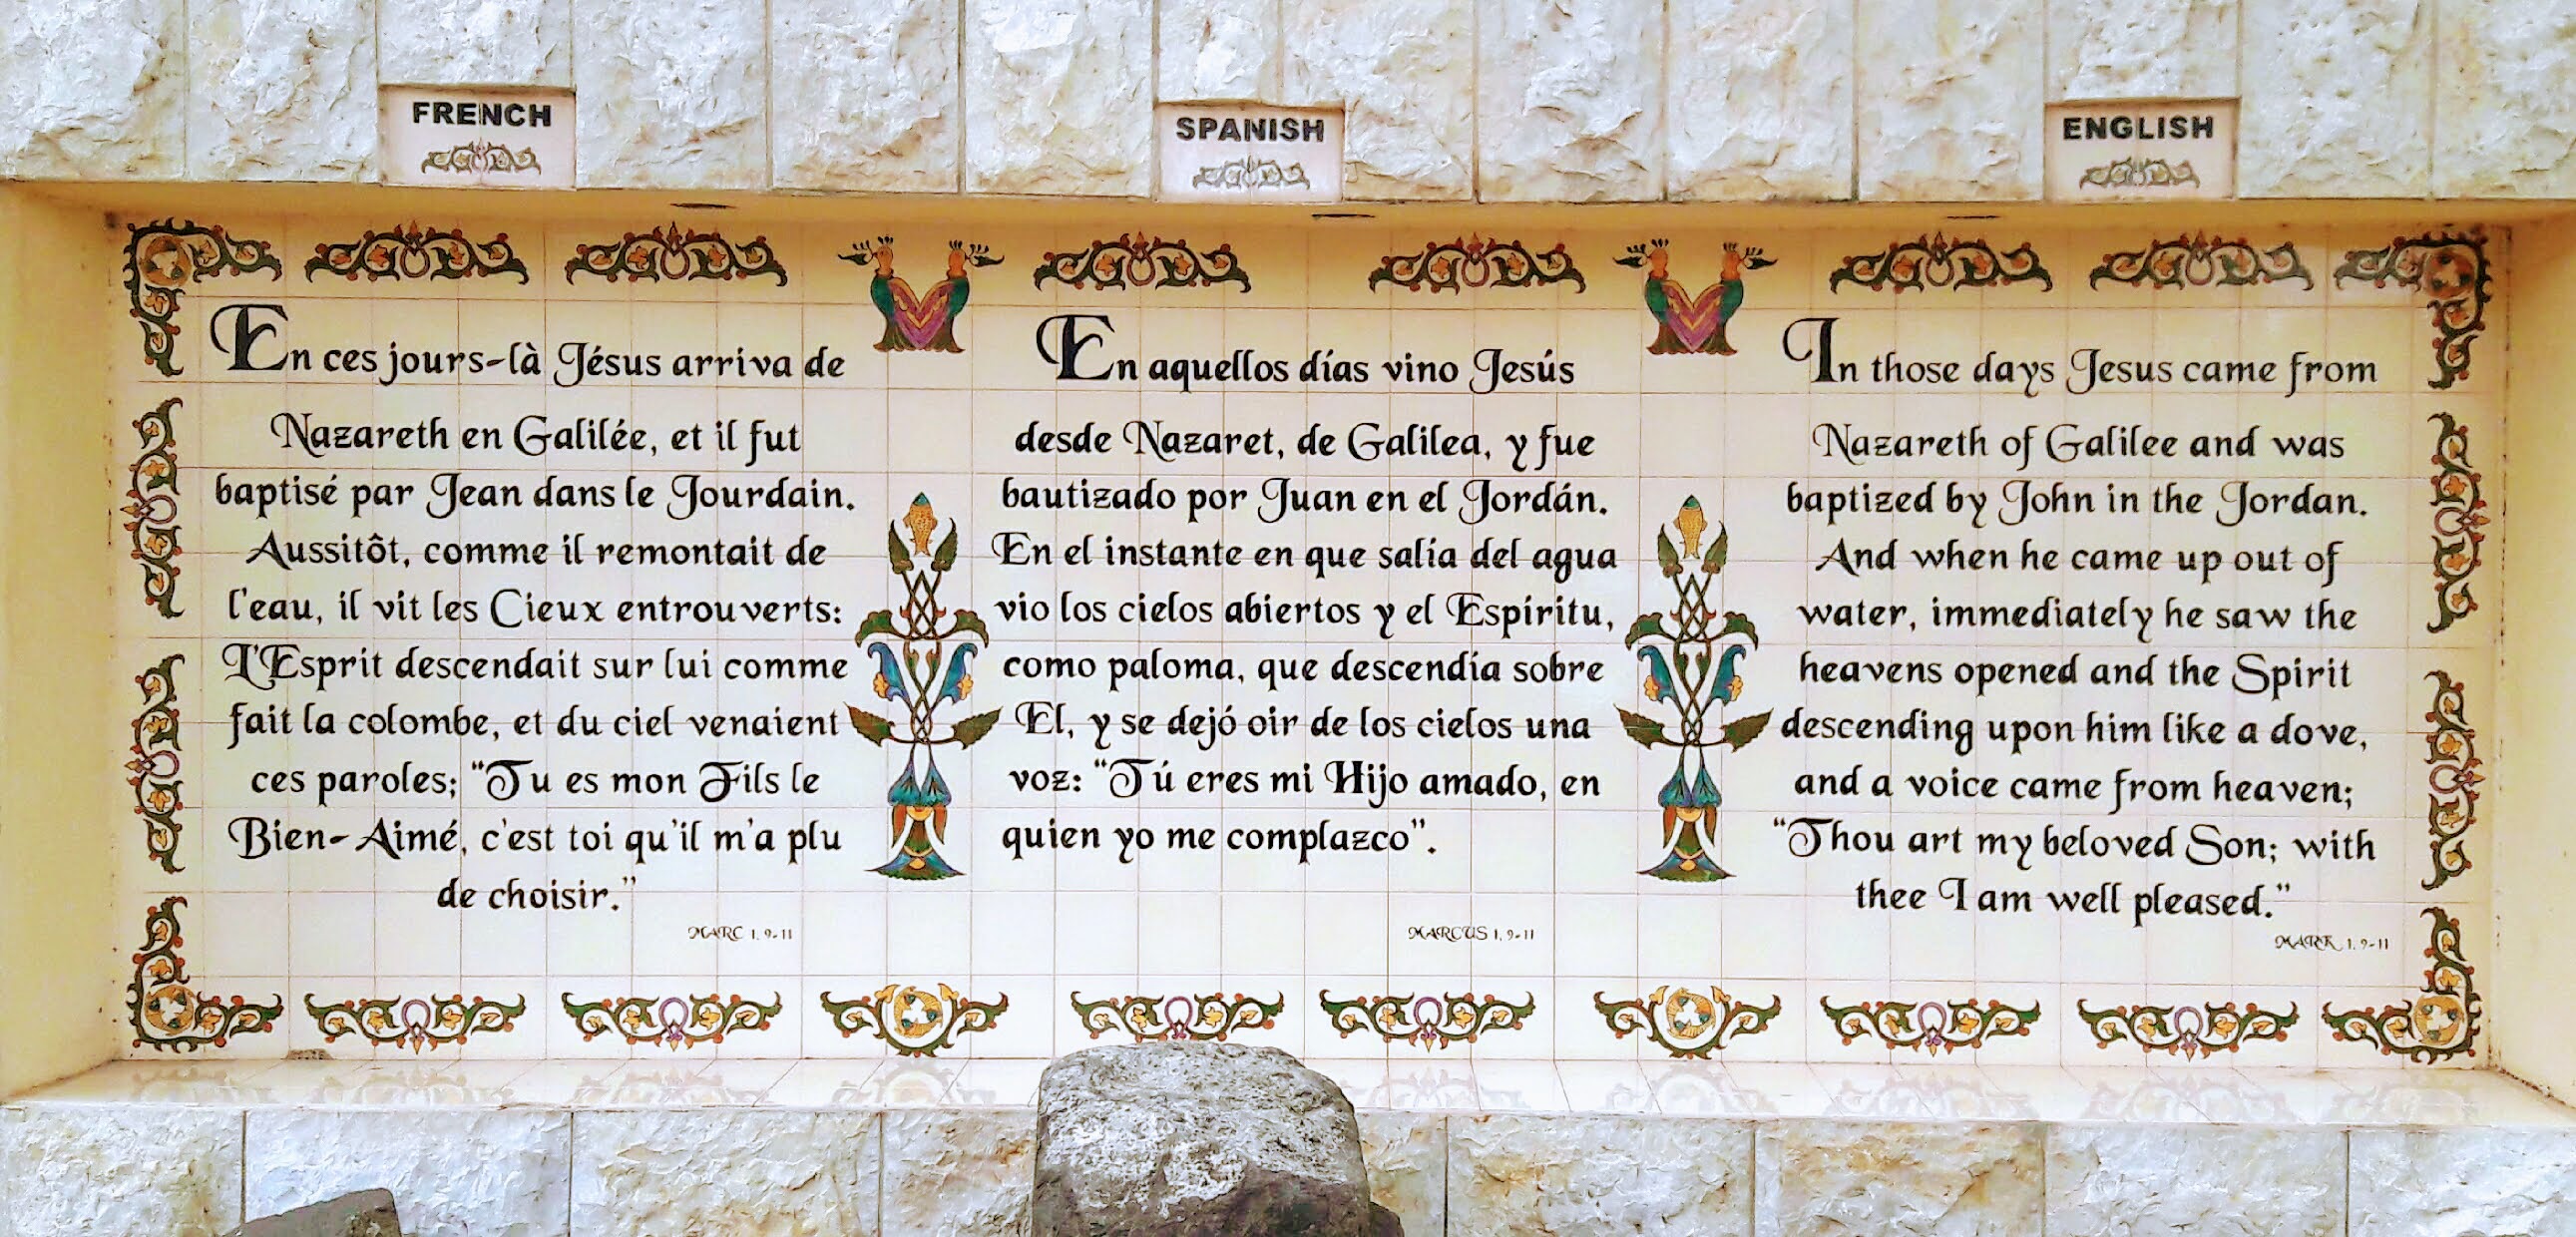 FRENCH
En ces jours-là Jésus arriva de
Nazareth en Galilée, et il fut
baptisé par Jean dans le Jourdain.
Aussitôt, comme il remontait de
l'eau, il vit les Cieux entrouverts:
L'Esprit descendait sur lui comme
fait la colombe, et du ciel venaient
ces paroles; “Tu es mon Fils le
Bien-Aimé, c'est toi qu'il m'a plu
de choisir.”
MARC 1, 9-11
SPANISH
En aquellos días vino Jesús
desde Nazaret, de Galilea, y fue
bautizado por Juan en el Jordán.
En el instante en que salía del agua
vio los cielos abiertos y el Espíritu,
como paloma, que descendía sobre
El, y se dejó oir de los cielos una
voz: “Tú eres mi Hijo amado, en
quien yo me complazco”.
MARCUS 1, 9-11
ENGLISH
In those days Jesus came from
Nazareth of Galilee and was
baptized by John in the Jordan.
And when he came up out of
water, immediately he saw the
heavens opened and the Spirit
descending upon him like a dove,
and a voice came from heaven;
“Thou art my beloved Son; with
thee I am well pleased.”
MARK 1, 9-11